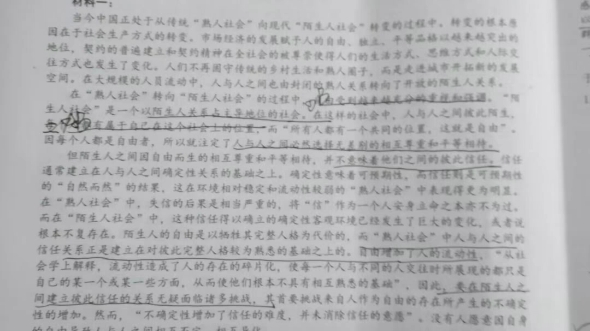 材料一：
当今中国正处于从传统“熟人社会”向现代“陌生人社会”转变的过程中。转变的根本原
因在于社会生产方式的转变。市场经济的发展赋予人的自由、独立、平等品格以越来越突出的
地位，契约的普遍建立和契约精神在全社会的被尊崇使得人们的生活方式、思维方式和人际交
往方式也发生了变化。人们不再固守传统的乡村生活和熟人圈子，而是走进城市开拓新的发展
空间。在大规模的人员流动中，人与人之间也由封闭的熟人关系转向了开放的陌生人关系。
在“熟人社会”转向“陌生人社会”的过程中，
生人社会”是一个以陌生人关系占主导地位的社会。在这样的社会中，人与人之间彼此陌生，
有属于自己在这个社会上的位置，而“所有人都有一个共同的位置，这就是自由”。
因每个人都是自由者，所以就注定了人与人之间必然选择无差别的相互尊重和平等相待。
但陌生人之间因自由而生的相互尊重和平等相待，并不意味着他们之间的彼此信任。信任
通常建立在人与人之间确定性关系的基础之上。确定性意味着可预期性，而信任则是可预期性
的“自然而然”的结果，这在环境相对稳定和流动性较弱的“熟人社会”中表现得更为明显。
在“熟人社会”中，失信的后果是相当严重的，将“信”作为一个人安身立命之本亦不为过。
而在“陌生人社会”中，这种信任得以确立的确定性客观环境已经发生了巨大的变化，或者说
根本不复存在。陌生人的自由是以牺牲其完整人格为代价的，而“熟人社会”中人与人之间的
信任关系正是建立在对彼此完整人格较为熟悉的基础之上的。自由增加了人的流动性，“从社
会学上解释，流动性造成了人的存在的碎片化，使每一个人与不同的人交往时所展现的都只是
自己的某一个或某一些方面，从而使他们根本不具有相互熟悉的基础”，因此，要在陌生人之
间建立彼此信任的关系无疑面临诸多挑战，其首要挑战来自人作为自由的存在所产生的不确定
性的增加。然而，“不确定性增加了信任的难度，并未消除信任的意愿”。没有人愿意因自身